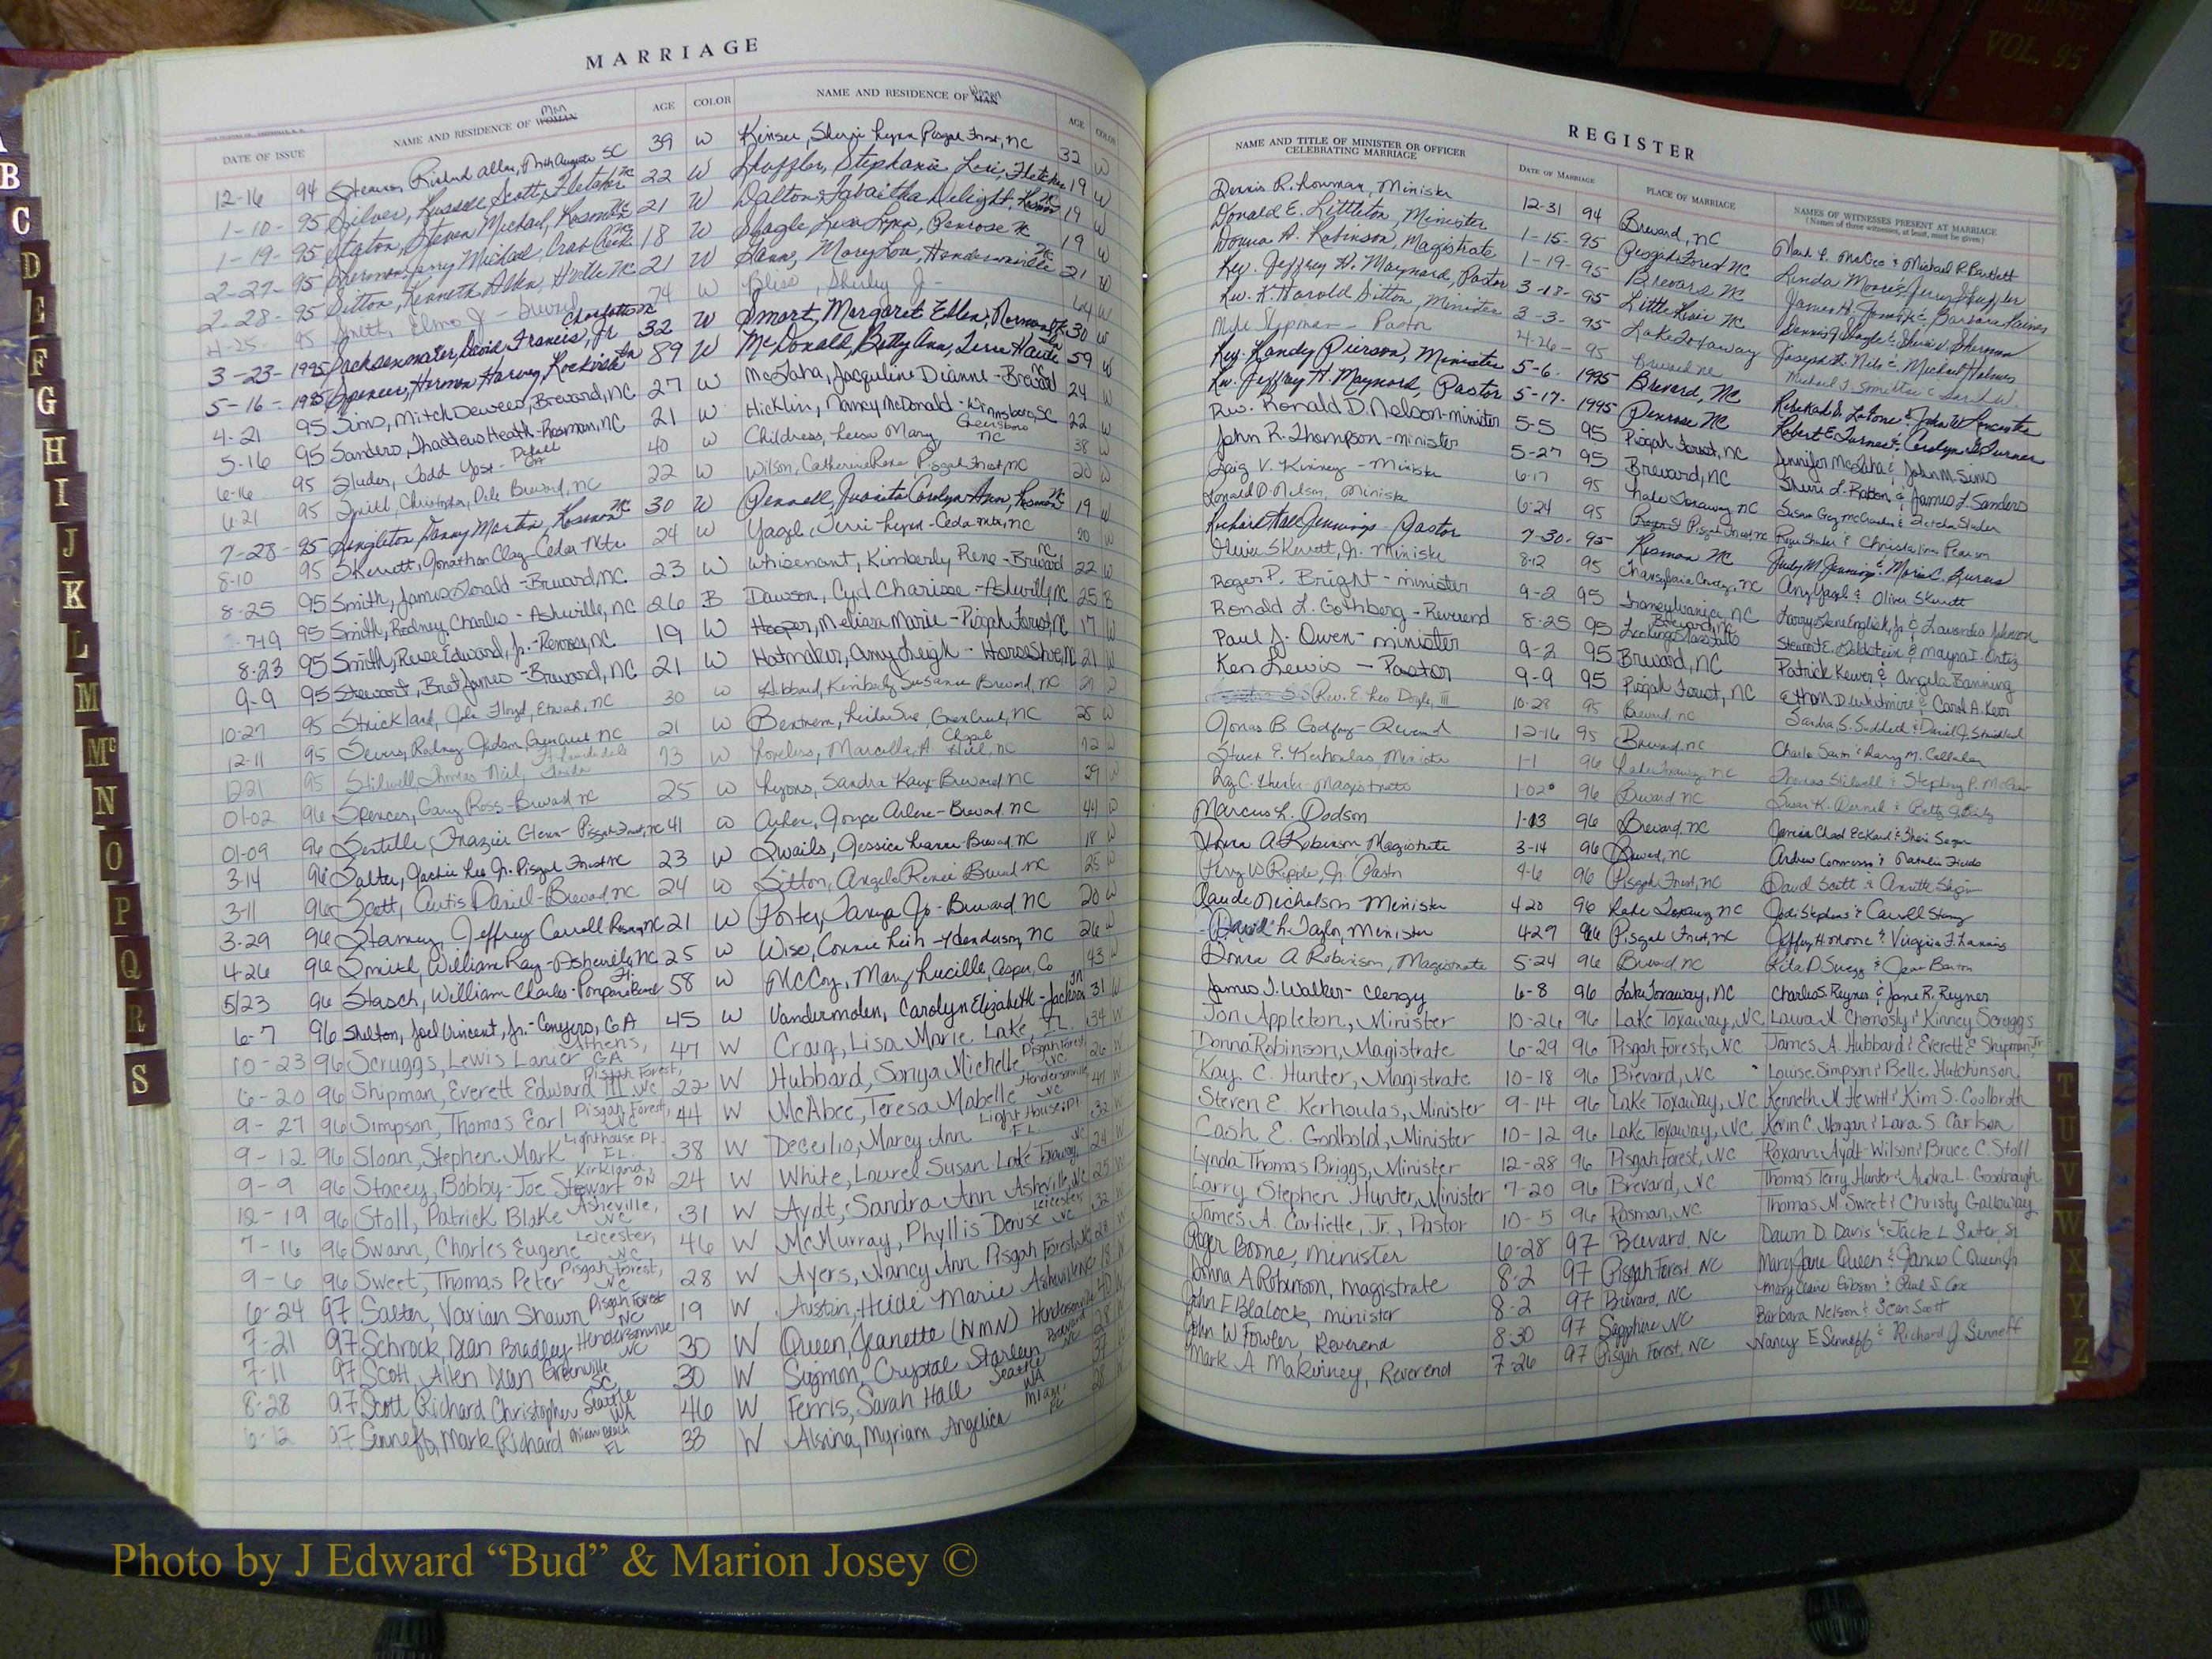 MARRIAGE
DATE OF ISSUE
NAME AND RESIDENCE OF WOMAN Man
AGE
COLOR
NAME AND RESIDENCE OF MAN Woman
AGE
COLOR
12-16 94 Richard Allen, North Augusta SC 39 W Kinsey, Sherri Lynn Pisgah Forest, NC 32 W
1-10-95 Silver, Russell Scott, Fletcher NC 22 W Stephanie Lori, Fletcher 19 W
1-19-95 Staton, Steven Michael, Rosman NC 21 W Dalton, Tabaitha Delight, 19 W
2-27-95 Sherman, Jerry Michael, Crab Creek NC 18 W Slagle, Lisa Lynn, Penrose NC 19 W
2-28-95 Sitton, Kenneth Allen, NC 21 W Mary Lou, Hendersonville NC 21 W
4-25- 95 Smith, Elmo J - Brevard 74 W Bliss, Shirley J- W
3-23-1995 David Francis, Jr Charlotte NC 32 W Smart, Margaret Ellen, 30 W
5-16-1995 Spencer, Herman Harvey, 89 W McDonald, Betty Ann, Terre Haute 59 W
4-21 95 Sims, Mitch Deweese, Brevard, NC 27 W Jacquline Dianne - Brevard NC 24 W
5-16 95 Sanders, Heath - Rosman, NC 21 W Hicklin, Nancy McDonald - Winnsboro, SC 22 W
6-16 95 Sluder, Todd Yost - 40 W Childress, Leesa Mary Greensboro NC 38 W
6-21 95 Smith, Christopher Dale Brevard, NC 22 W Wilson, Catherine Rose Pisgah Forest, NC 20 W
7-28-95 Singleton Danny Martin, Rosman NC 30 W Juanita Carolyn Ann, Rosman NC 19 W
8-10 95 Skerrett, Jonathan Clay - Cedar Mtn 24 W Yagel, Terri Lynn - Cedar Mtn, NC 20 W
8-25 95 Smith, James - Brevard, NC. 23 W Whisenant, Kimberly Rene - Brevard NC 22 W
7-19 95 Smith, Rodney Charles - Asheville, NC 26 B Dawson, Cyd Charisse - Asheville, NC 25 B
8-23 95 Smith, Edward, Jr. - Penrose, NC 19 W Hooper, Melissa Marie - Pisgah Forest, NC 17 W
9-9 95 Stewart, Bret James - Brevard, NC 21 W Hotmaker, Amy Leigh - Horse Shoe, NC 21 W
10-27 95 Strickland, John Floyd, Etowah, NC 30 W Hibbard, Kimberly Susanne Brevard, NC W
12-11 95 Rodney Judson, NC 21 W Leila Sue, NC 25 W
12-21 95 Stilwell, Thomas Niel, Ft Lauderdale Florida 73 W Marcella A. Chapel Hill, NC 72 W
01-02 96 Spencer, Gary Ross - Brevard NC 25 W Lyons, Sandra Kaye - Brevard NC 29 W
01-09 96 Sentelle, Frazier Glenn - Pisgah Forest, NC 41 W Arlene - Brevard NC 44 W
3-14 96 Salter, Jackie Lee Jr. Pisgah Forest NC 23 W Swails, Jessica - Brevard NC 18 W
3-11 96 Scott, Curtis Daniel - Brevard NC 24 W Sitton, Angela Renee Brevard NC 25 W
3-29 96 Stamey, Jeffrey Carroll Rosman, NC 21 W Porter, Tanya Jo - Brevard NC 20 W
4-26 96 Smith, William Ray - Asheville, NC 25 W Wise, Connie - Henderson, NC 26 W
5/23 96 Stasch, William Charles - Pompano Beach Fl. 58 W McCoy, Mary Lucille, Aspen, Co 43 W
6-7 96 Shelton, Joel Vincent, Jr. - Conyers, GA 45 W Vandermolen, Carolyn Elizabeth - Jackson TN 31 W
10-23 96 Scruggs, Lewis Lanier Athens, GA 47 W Craig, Lisa Marie Lake, FL. 34 W
6-20 96 Shipman, Everett Edward III Pisgah Forest, NC 22 W Hubbard, Sonya Michelle Pisgah Forest, NC 26 W
9-27 96 Simpson, Thomas Earl Pisgah Forest, NC 44 W McAbee, Teresa Mabelle Hendersonville, NC 41 W
9-12 96 Sloan, Stephen Mark Lighthouse Pt. FL. 38 W Deceilio, Marcy Ann Light House Pt FL. 32 W
9-9 96 Stacey, Bobby-Joe Stewart Kirkland, ON 24 W White, Laurel Susan Lake Toxaway, NC 24 W
12-19 96 Stoll, Patrick Blake Asheville, NC 31 W Aydt, Sandra Ann Asheville, NC 25 W
7-16 96 Swann, Charles Eugene Leicester, NC 46 W McMurray, Phyllis Denise Leicester, NC 32 W
9-6 96 Sweet, Thomas Peter Pisgah Forest, NC 28 W Ayers, Nancy Ann Pisgah Forest, NC 28 W
6-24 97 Salter, Varian Shawn Pisgah Forest NC 19 W Austin, Heidi Marie Asheville NC 18 W
7-21 97 Schrock, Dean Bradley Hendersonville NC 30 W Queen, Jeanette (NMN) Hendersonville 40 W
7-11 97 Scott, Allen Dean Greenville SC 30 W Sigmon, Crystal Starleen Brevard NC 28 W
8-28 97 Scott Richard Christopher Seattle WA 46 W Ferris, Sarah Hall Seattle WA 37 W
6-12 97 Senneff, Mark Richard Miami Beach FL 33 W Alsina, Myriam Angelica Miami, FL 28 W
REGISTER
NAME AND TITLE OF MINISTER OR OFFICER CELEBRATING MARRIAGE
DATE OF MARRIAGE
PLACE OF MARRIAGE
NAMES OF WITNESSES PRESENT AT MARRIAGE
(Names of three witnesses, at least, must be given)
Dennis R. Lowman, Minister 12-31 94 Brevard, NC Mark L. McGee & Michael R. Bartlett
Donald E. Littleton, Minister 1-15-95 Pisgah Forest NC Linda Moore & Jerry
Donna A. Robinson, Magistrate 1-19-95 Brevard NC James H. & Barbara
Rev. Jeffrey H. Maynard, Pastor 3-18-95 Little River NC Dennis J. Slagle & Sherman
Rev. K. Harold Sitton, Minister 3-3-95 Lake Toxaway Joseph & Michael Holmes
Pastor 4-26-95 Brevard NC Michael J.
Rev. Randy Pierson, Minister 5-6-1995 Brevard, NC Rebekah S. & John W. Lancaster
Rev. Jeffrey H. Maynard, Pastor 5-17-1995 Penrose NC Robert E. Turner & Carolyn G. Turner
Rev. Ronald D. Nelson - minister 5-5 95 Pisgah Forest, NC Jennifer & John M. Sims
John R. Thompson - minister 5-27 95 Brevard, NC Sherri L. & James L. Sanders
Craig V. Kinney - Minister 6-17 95 Lake Toxaway NC Susan Gray & Sluder
Ronald D. Nelson, Minister 6-24 95 Pisgah Forest NC & Christalina Pearson
Richard Hall Jennings - Pastor 7-30-95 Rosman NC Judy M. Jennings & Maria C. Burns
Oliver Skerrett, Jr. Minister 8-12 95 Transylvania County, NC Amy Yagel & Oliver Skerrett
Roger P. Bright - minister 9-2 95 Transylvania, NC Larry Gene English, Jr & Lavondia Johnson
Ronald L. Gothberg - Reverend 8-25 95 Brevard, NC Looking Glass Falls Stewart E. Goldstein & Mayra I. Ortiz
Paul J. Owen - minister 9-2 95 Brevard, NC Patrick Kewer & Angela Banning
Ken Lewis - Pastor 9-9 95 Pisgah Forest, NC Ethan D. Whitmire & Carol A. Kerr
Rev. E. Leo Dogle, III 10-28 95 Brevard, NC Sandra S. Suddeth & Daniel J. Strickland
Jonas B. Godfrey - Reverend 12-16 95 Brevard NC Charles & Larry M. Callahan
Steven E. Kerhoulas, Minister 1-1 96 Lake Toxaway NC Thomas Stilwell & Stephen P.
Kay C. Hunter - Magistrate 1-02 96 Brevard NC Susan K. & Betty
Marcus L. Dodson 1-13 96 Brevard, NC Chad Eckard & Sheri
Donna A Robinson Magistrate 3-14 96 Brevard, NC Andrew & Natalie Fields
Perry W Ripple, Jr. Pastor 4-6 96 Pisgah Forest, NC David Scott & Annette
Claude Nicholson Minister 4 20 96 Lake Toxaway NC Jodi Stephens & Carroll Stamey
David L. Taylor, Minister 4 29 96 Pisgah Forest, NC Jeffrey H Moore & Virginia F. Lanning
Donna A Robinson, Magistrate 5-24 96 Brevard, NC Rita D. & Jean Barton
James T. Walker - Clergy 6-8 96 Lake Toxaway, NC Charles S. Reyner & Jane R. Reyner
Jon Appleton, Minister 10-26 96 Lake Toxaway, NC Laura N. & Kinney Scruggs
Donna Robinson, Magistrate 6-29 96 Pisgah Forest, NC James A. Hubbard & Everett E. Shipman, Jr.
Kay C. Hunter, Magistrate 10-18 96 Brevard, NC Louise Simpson & Belle Hutchinson
Steven E. Kerhoulas, Minister 9-14 96 Lake Toxaway, NC Kenneth N. Hewitt & Kim S. Coolbroth
Cash E. Godbold, Minister 10-12 96 Lake Toxaway, NC Kevin C. Morgan & Lara S. Carlson
Lynda Thomas Briggs, Minister 12-28 96 Pisgah Forest, NC Roxann Aydt-Wilson & Bruce C. Stoll
Larry Stephen Hunter, Minister 7-20 96 Brevard, NC Thomas Terry Hunter & Audra L. Goodnough
James A. Carliette, Jr., Pastor 10-5 96 Rosman, NC Thomas M. Sweet & Christy Galloway
Roger Boone, minister 6-28 97 Brevard, NC Dawn D. Davis & Jack L Salter, Sr
Donna A Robinson, magistrate 8-2 97 Pisgah Forest, NC Mary Jane Queen & James C Queen Jr
John F Blalock, minister 8-2 97 Brevard, NC Mary Claire Gibson & Paul S. Cox
John W Fowler, Reverend 8-30 97 Sapphire NC Barbara Nelson & Sean Scott
Mark A McKinney, Reverend 7-26 97 Pisgah Forest, NC Nancy E Senneff & Richard J Senneff
B
C
D
E
F
G
H
I
J
K
L
M
Mc
N
O
P
Q
R
S
T
U
V
W
X
Y
Z
VOL. 93
COUNTY
VOL. 95
Photo by J Edward “Bud” & Marion Josey ©